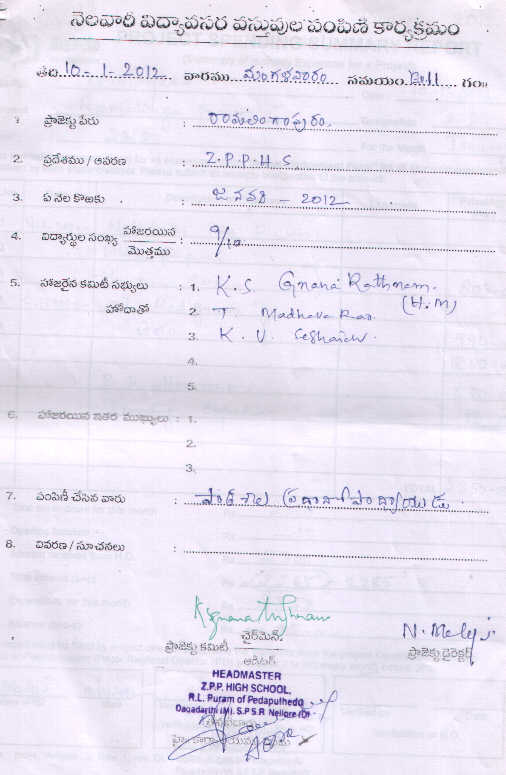 నెలవారీ విద్యావసర వస్తువుల పంపిణీ కార్యక్రమం
తేది 10-1-2012 వారము మంగళవారం సమయం గం॥
1. ప్రాజెక్టు పేరు : రామలింగాపురం.
2. ప్రదేశము / ఆవరణ : Z.P.P.H.S.
3. ఏ నెల కొఱకు : జనవరి - 2012
4. విద్యార్థుల సంఖ్య హాజరయిన / మొత్తము : 9/10
5. హాజరైన కమిటీ సభ్యులు : 1. K.S. Gnana Rathnam.
హోదాతో (H.M)
2. T Madhava Rao.
3. K. V. Seshaiah.
4.
5.
6. హాజరయిన ఇతర ముఖ్యులు : 1.
2.
3.
7. పంపిణీ చేసిన వారు : పాఠశాల ప్రధానోపాధ్యాయుడు.
8. వివరణ / సూచనలు :
ప్రాజెక్టు కమిటీ చైర్‌మెన్ / ఆడిటర్
ప్రాజెక్టు డైరెక్టర్
HEADMASTER
Z.P.P. HIGH SCHOOL,
R.L. Puram of Pedapulhedo
Dagadarthi (M). S.P.S.R Nellore (D)